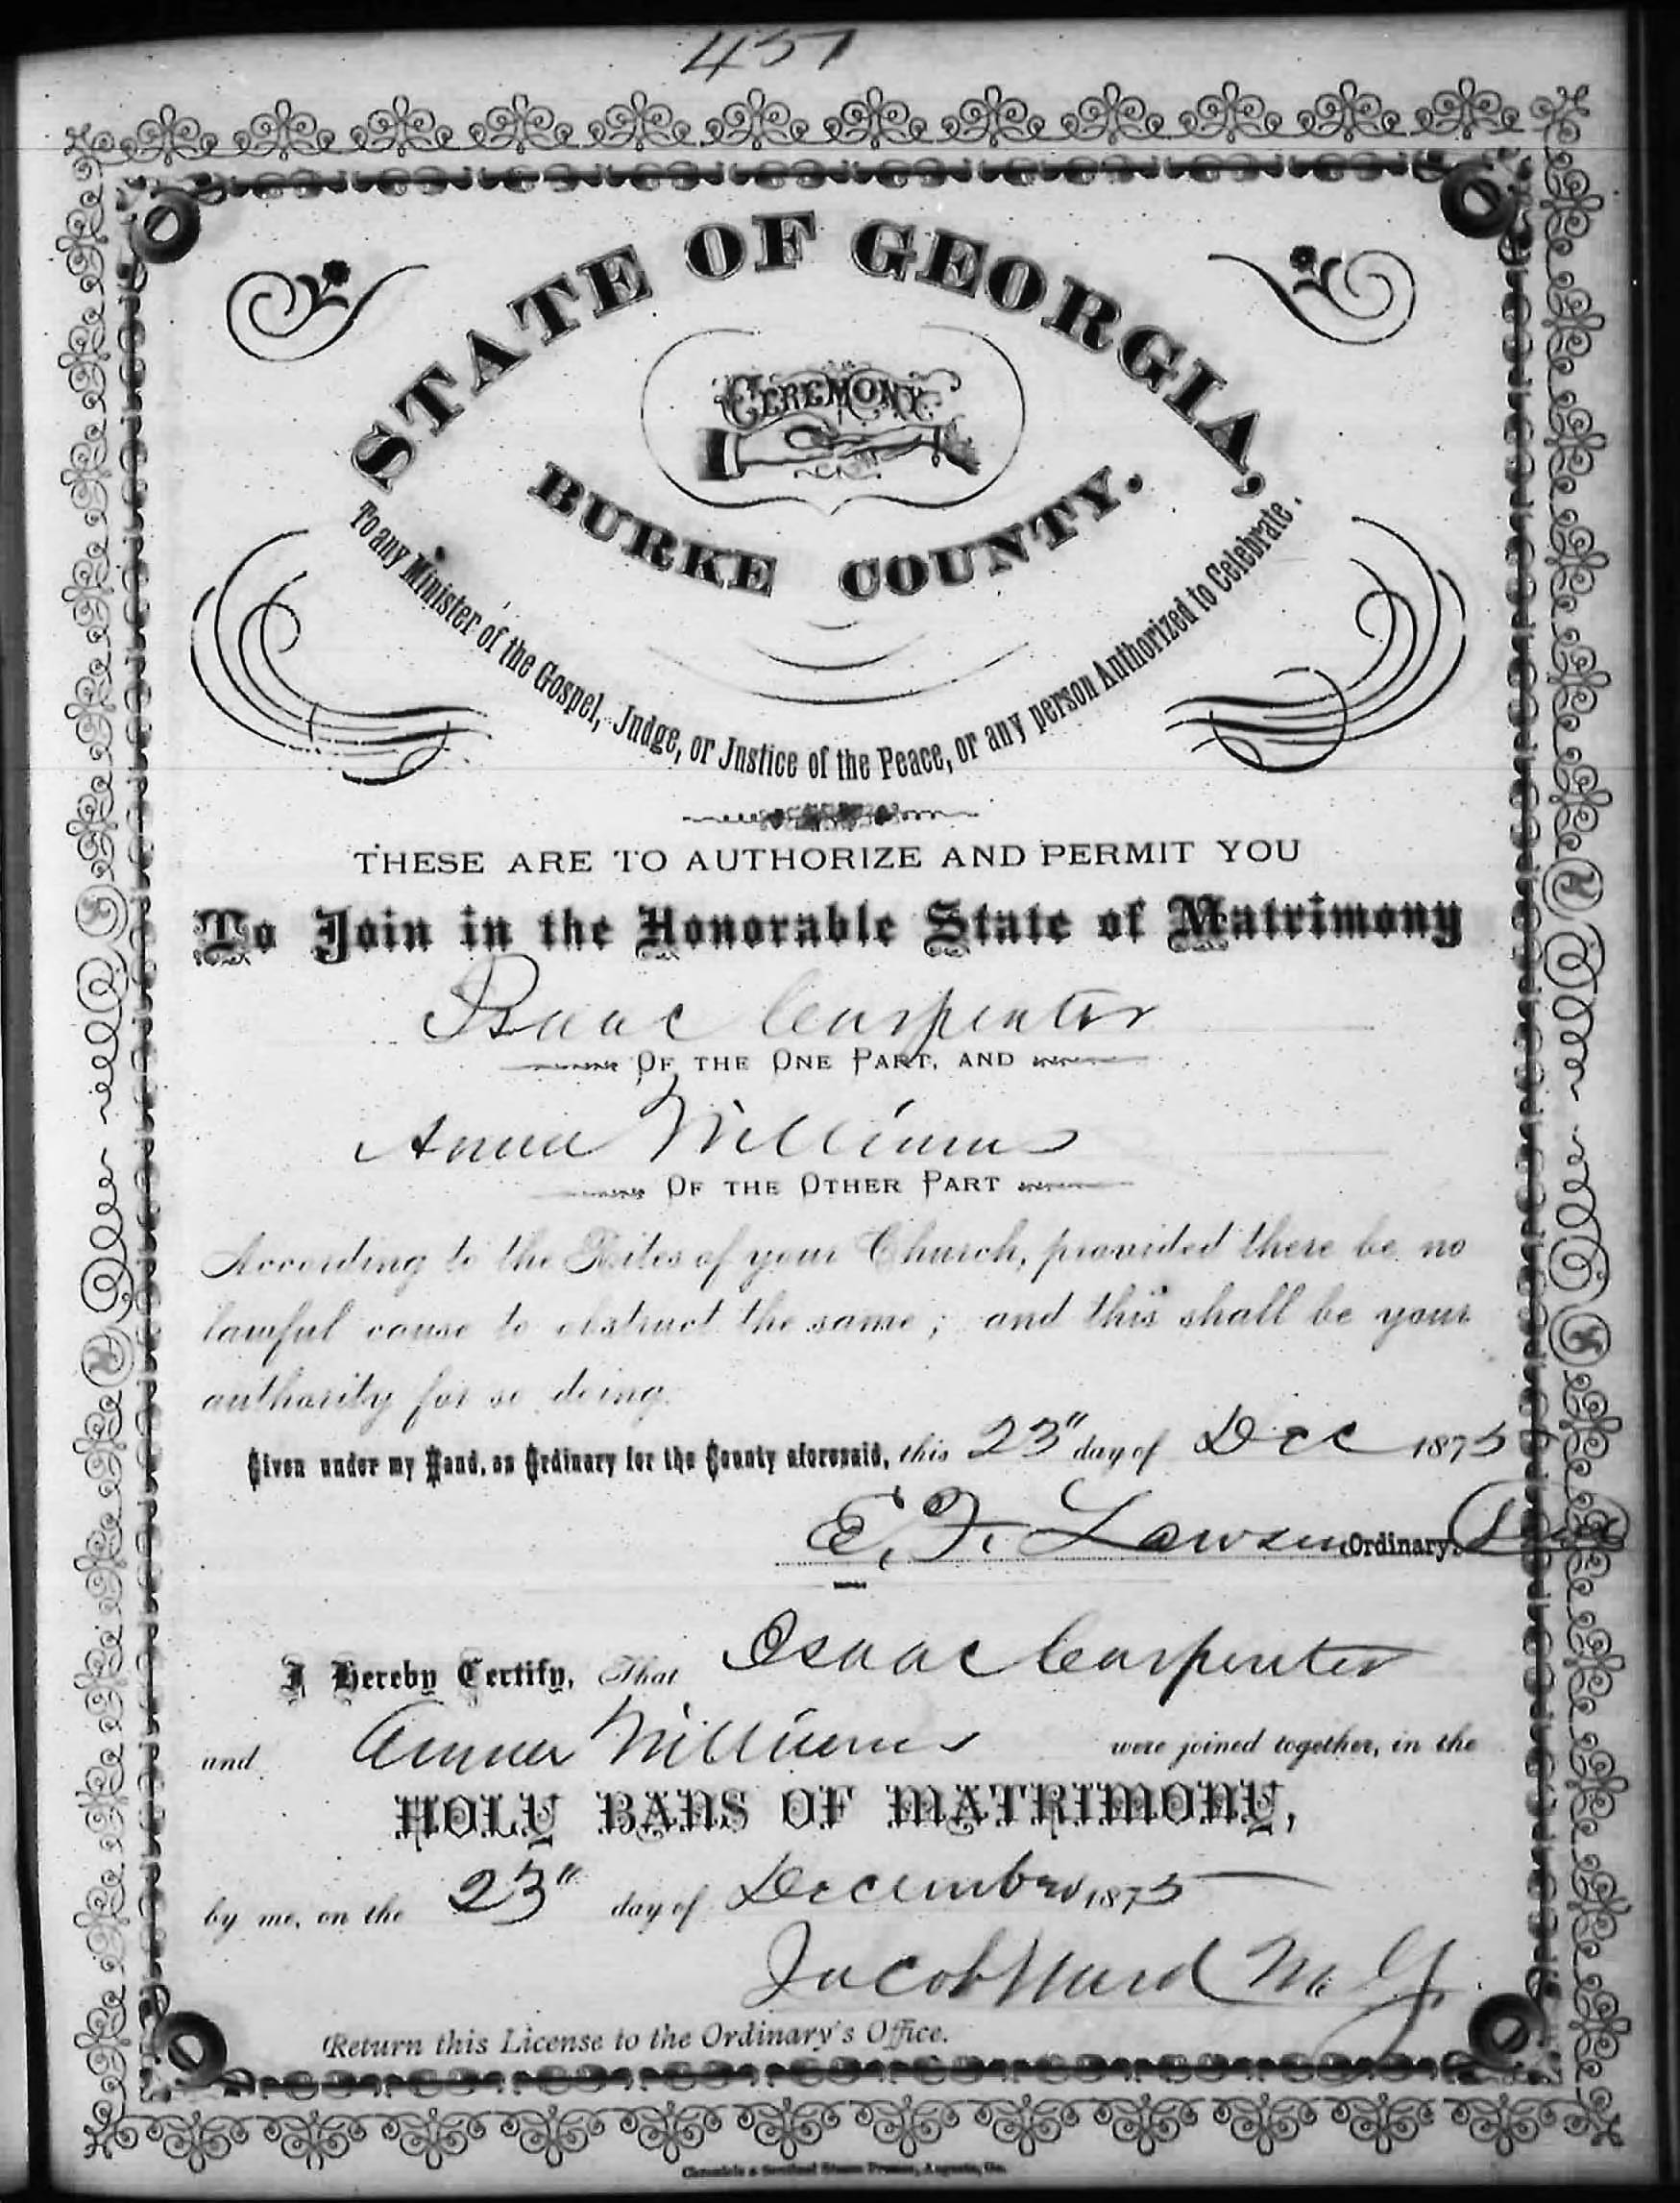 457
STATE OF GEORGIA,
CEREMONY
BURKE COUNTY.
To any Minister of the Gospel, Judge, or Justice of the Peace, or any person Authorized to Celebrate.
THESE ARE TO AUTHORIZE AND PERMIT YOU
To Join in the Honorable State of Matrimony
Isaac Carpenter
OF THE ONE PART, AND
Anna Williams
OF THE OTHER PART
According to the Rites of your Church, provided there be no
lawful cause to obstruct the same; and this shall be your
authority for so doing.
Given under my Hand, as Ordinary for the County aforesaid, this 23" day of Dec 1875
E. F. Lawson Ordinary.
I Hereby Certify, That Isaac Carpenter
and Anna Williams were joined together, in the
HOLY BANS OF MATRIMONY,
by me, on the 23" day of December 1875
Jacob Ward M. G.
Return this License to the Ordinary's Office.
Chronicle & Sentinel Steam Presses, Augusta, Ga.